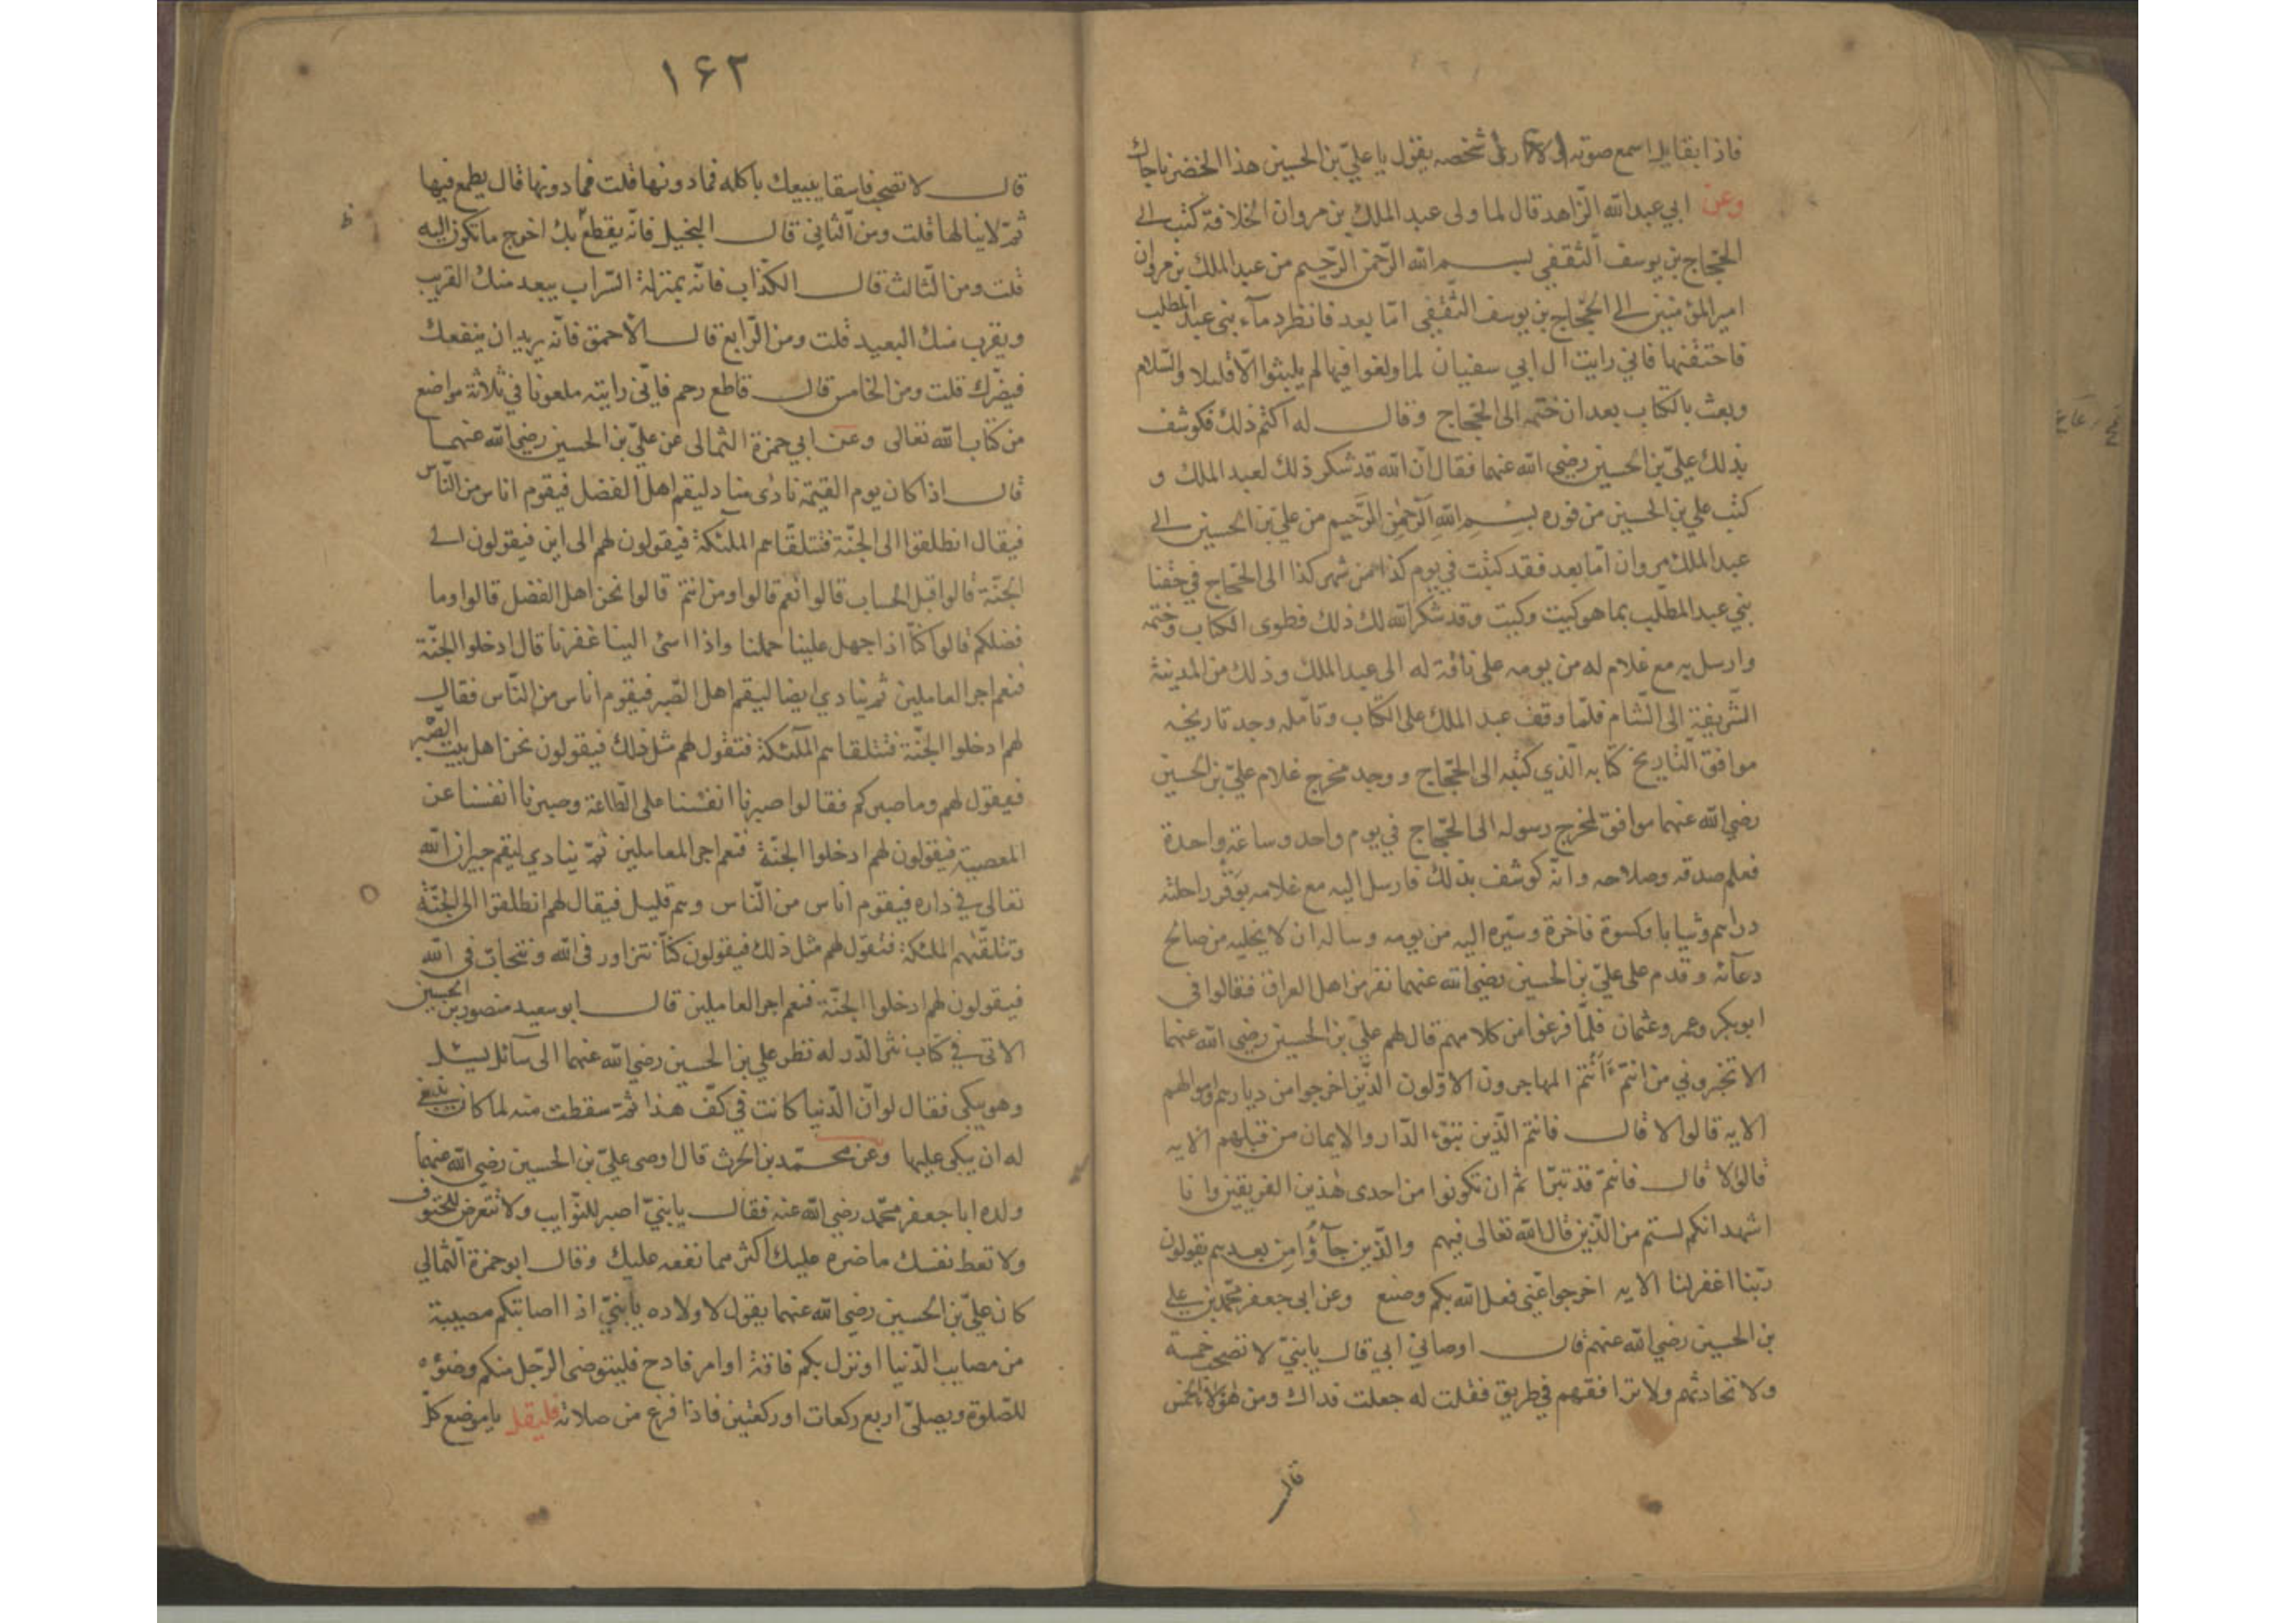 فاذا بقايل اسمع صوته ولا ارى شخصه يقول يا علي بن الحسين هذا الخضر ناجاك
وعن ابي عبد الله الزاهد قال لما ولى عبد الملك بن مروان الخلافة كتب الى
الحجاج بن يوسف الثقفي بسم الله الرحمن الرحيم من عبد الملك بن مروان
امير المؤمنين الى الحجاج بن يوسف الثقفي اما بعد فانظر دمآء بني عبد المطلب
فاحتقنها فاني رايت ال ابي سفيان لما ولغوا فيها لم يلبثوا الا قليلا والسلام
وبعث بالكتاب بعد ان ختمه الى الحجاج وقال له اكتم ذلك فكوشف
بذلك علي بن الحسين رضي الله عنهما فقال ان الله قد شكر ذلك لعبد الملك و
كتب علي بن الحسين من فوره بسم الله الرحمن الرحيم من علي بن الحسين الى
عبد الملك مروان اما بعد فقد كتبت في يوم كذا من شهر كذا الى الحجاج في حقنا
بني عبد المطلب بما هو كيت وكيت وقد شكر الله لك ذلك فطوى الكتاب وختمه
وارسل به مع غلام له من يومه على ناقة له الى عبد الملك وذلك من المدينة
الشريفة الى الشام فلما وقف عبد الملك على الكتاب وتامله وجد تاريخه
موافق التاريخ كتابه الذي كتبه الى الحجاج ووجد مخرج غلام علي بن الحسين
رضي الله عنهما موافق لمخرج رسوله الى الحجاج في يوم واحد وساعة واحدة
فعلم صدقه وصلاحه وانه كوشف بذلك فارسل اليه مع غلامه بوقر راحلته
دراهم وثيابا وكسوة فاخرة وسيره اليه من يومه وساله ان لا يخليه من صالح
دعآئه وقدم على علي بن الحسين رضي الله عنهما نفر من اهل العراق فقالوا في
ابو بكر وعمر وعثمان فلما فرغوا من كلامهم قال لهم علي بن الحسين رضي الله عنهما
الا تخبروني من انتم ءانتم المهاجرون الاولون الذين اخرجوا من ديارهم واموالهم
الايه قالوا لا قال فانتم الذين تبوء الدار والايمان من قبلهم الايه
قالوا لا قال فانتم قد تبرا تم ان تكونوا من احدى هذين الفريقين وانا
اشهد انكم لستم من الذين قال الله تعالى فيهم والذين جآؤا من بعدهم يقولون
ربنا اغفر لنا الايه اخرجوا عني فعل الله بكم وصنع وعن ابى جعفر محمد بن علي
بن الحسين رضي الله عنهم قال اوصاني ابي قال يا بني لا تصحبن خمسة
ولا تحادثهم ولا ترافقهم في طريق فقلت له جعلت فداك ومن هؤلاء الخمس
قال
١٦٢
قال لا تصحب فاسقا يبيعك باكله فما دونها قلت فما دونها قال يطمع فيها
ثم لا ينالها قلت ومن الثاني قال البخيل فانه يقطع بك احوج ما تكون اليه
قلت ومن الثالث قال الكذاب فانه بمنزلة السراب يبعد منك القريب
ويقرب منك البعيد قلت ومن الرابع قال الاحمق فانه يريد ان ينفعك
فيضرك قلت ومن الخامس قال قاطع رحم فاني رايته ملعونا في ثلاثة مواضع
من كتاب الله تعالى وعن ابي حمزة الثمالى عن علي بن الحسين رضي الله عنهما
قال اذا كان يوم القيمة نادى مناد ليقم اهل الفضل فيقوم اناس من الناس
فيقال انطلقوا الى الجنة فتتلقاهم الملئكة فيقولون لهم الى اين فيقولون الى
الجنة قالوا قبل الحساب قالوا نعم قالوا ومن انتم قالوا نحن اهل الفضل قالوا وما
فضلكم قالوا كنا اذا جهل علينا حملنا واذا اسئ الينا غفرنا قال ادخلوا الجنة
فنعم اجر العاملين ثم ينادي ايضا ليقم اهل الصبر فيقوم اناس من الناس فقال
لهم ادخلوا الجنة فتتلقاهم الملئكة فتقول لهم مثل ذلك فيقولون نحن اهل بيت الصبر
فيقول لهم وما صبركم فقالوا صبرنا انفسنا على الطاعة وصبرنا انفسنا عن
المعصية فيقولون لهم ادخلوا الجنة فنعم اجر المعاملين ثم ينادي ليقم جيران الله
تعالى في داره فيقوم اناس من الناس وهم قليل فيقال لهم انطلقوا الى الجنة
وتتلقهم الملئكة فتقول لهم مثل ذلك فيقولون كنا نتزاور فى الله ونتحاب فى الله
فيقولون لهم ادخلوا الجنة فنعم اجر العاملين قال ابو سعيد منصور بن الحسين
الاتى في كتاب نثر الدر له نظر علي بن الحسين رضي الله عنهما الى سآئل يسئل
وهو يبكى فقال لو ان الدنيا كانت في كف هذا ثم سقطت منه لما كان ينبغي
له ان يبكى عليها وعن محمد بن الحرث قال اوصى علي بن الحسين رضي الله عنهما
ولده ابا جعفر محمد رضي الله عنه فقال يا بني اصبر للنوايب ولا تتعرض للحتوف
ولا تعط نفسك ما ضره عليك اكثر مما نفعه عليك وقال ابو حمزة الثمالي
كان علي بن الحسين رضي الله عنهما يقول لاولاده يا بني اذا اصابتكم مصيبة
من مصايب الدنيا او نزل بكم فاقة او امر فادح فليتوضى الرجل منكم وضؤه
للصلوة ويصلي اربع ركعات او ركعتين فاذا فرغ من صلاته فليقل يا موضع كل